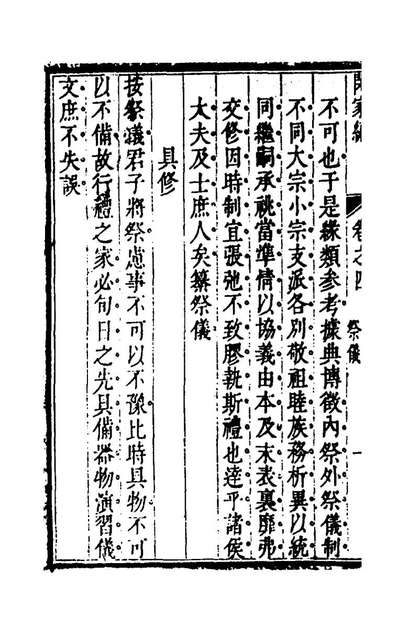 閑家編 卷之四 祭儀 一
不可也于是緣類參考據典博徵內祭外祭儀制
不同大宗小宗支派各別敬祖睦族務析異以統
同繼嗣承祧當準情以協義由本及末表裏靡弗
交修因時制宜張弛不致膠執斯禮也達乎諸侯
大夫及士庶人矣纂祭儀
具修
按祭儀君子將祭慮事不可以不豫比時具物不可
以不備故行禮之家必旬日之先具備器物演習儀
文庶不失誤